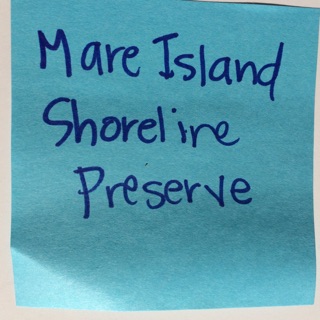 Mare Island
Shoreline
Preserve